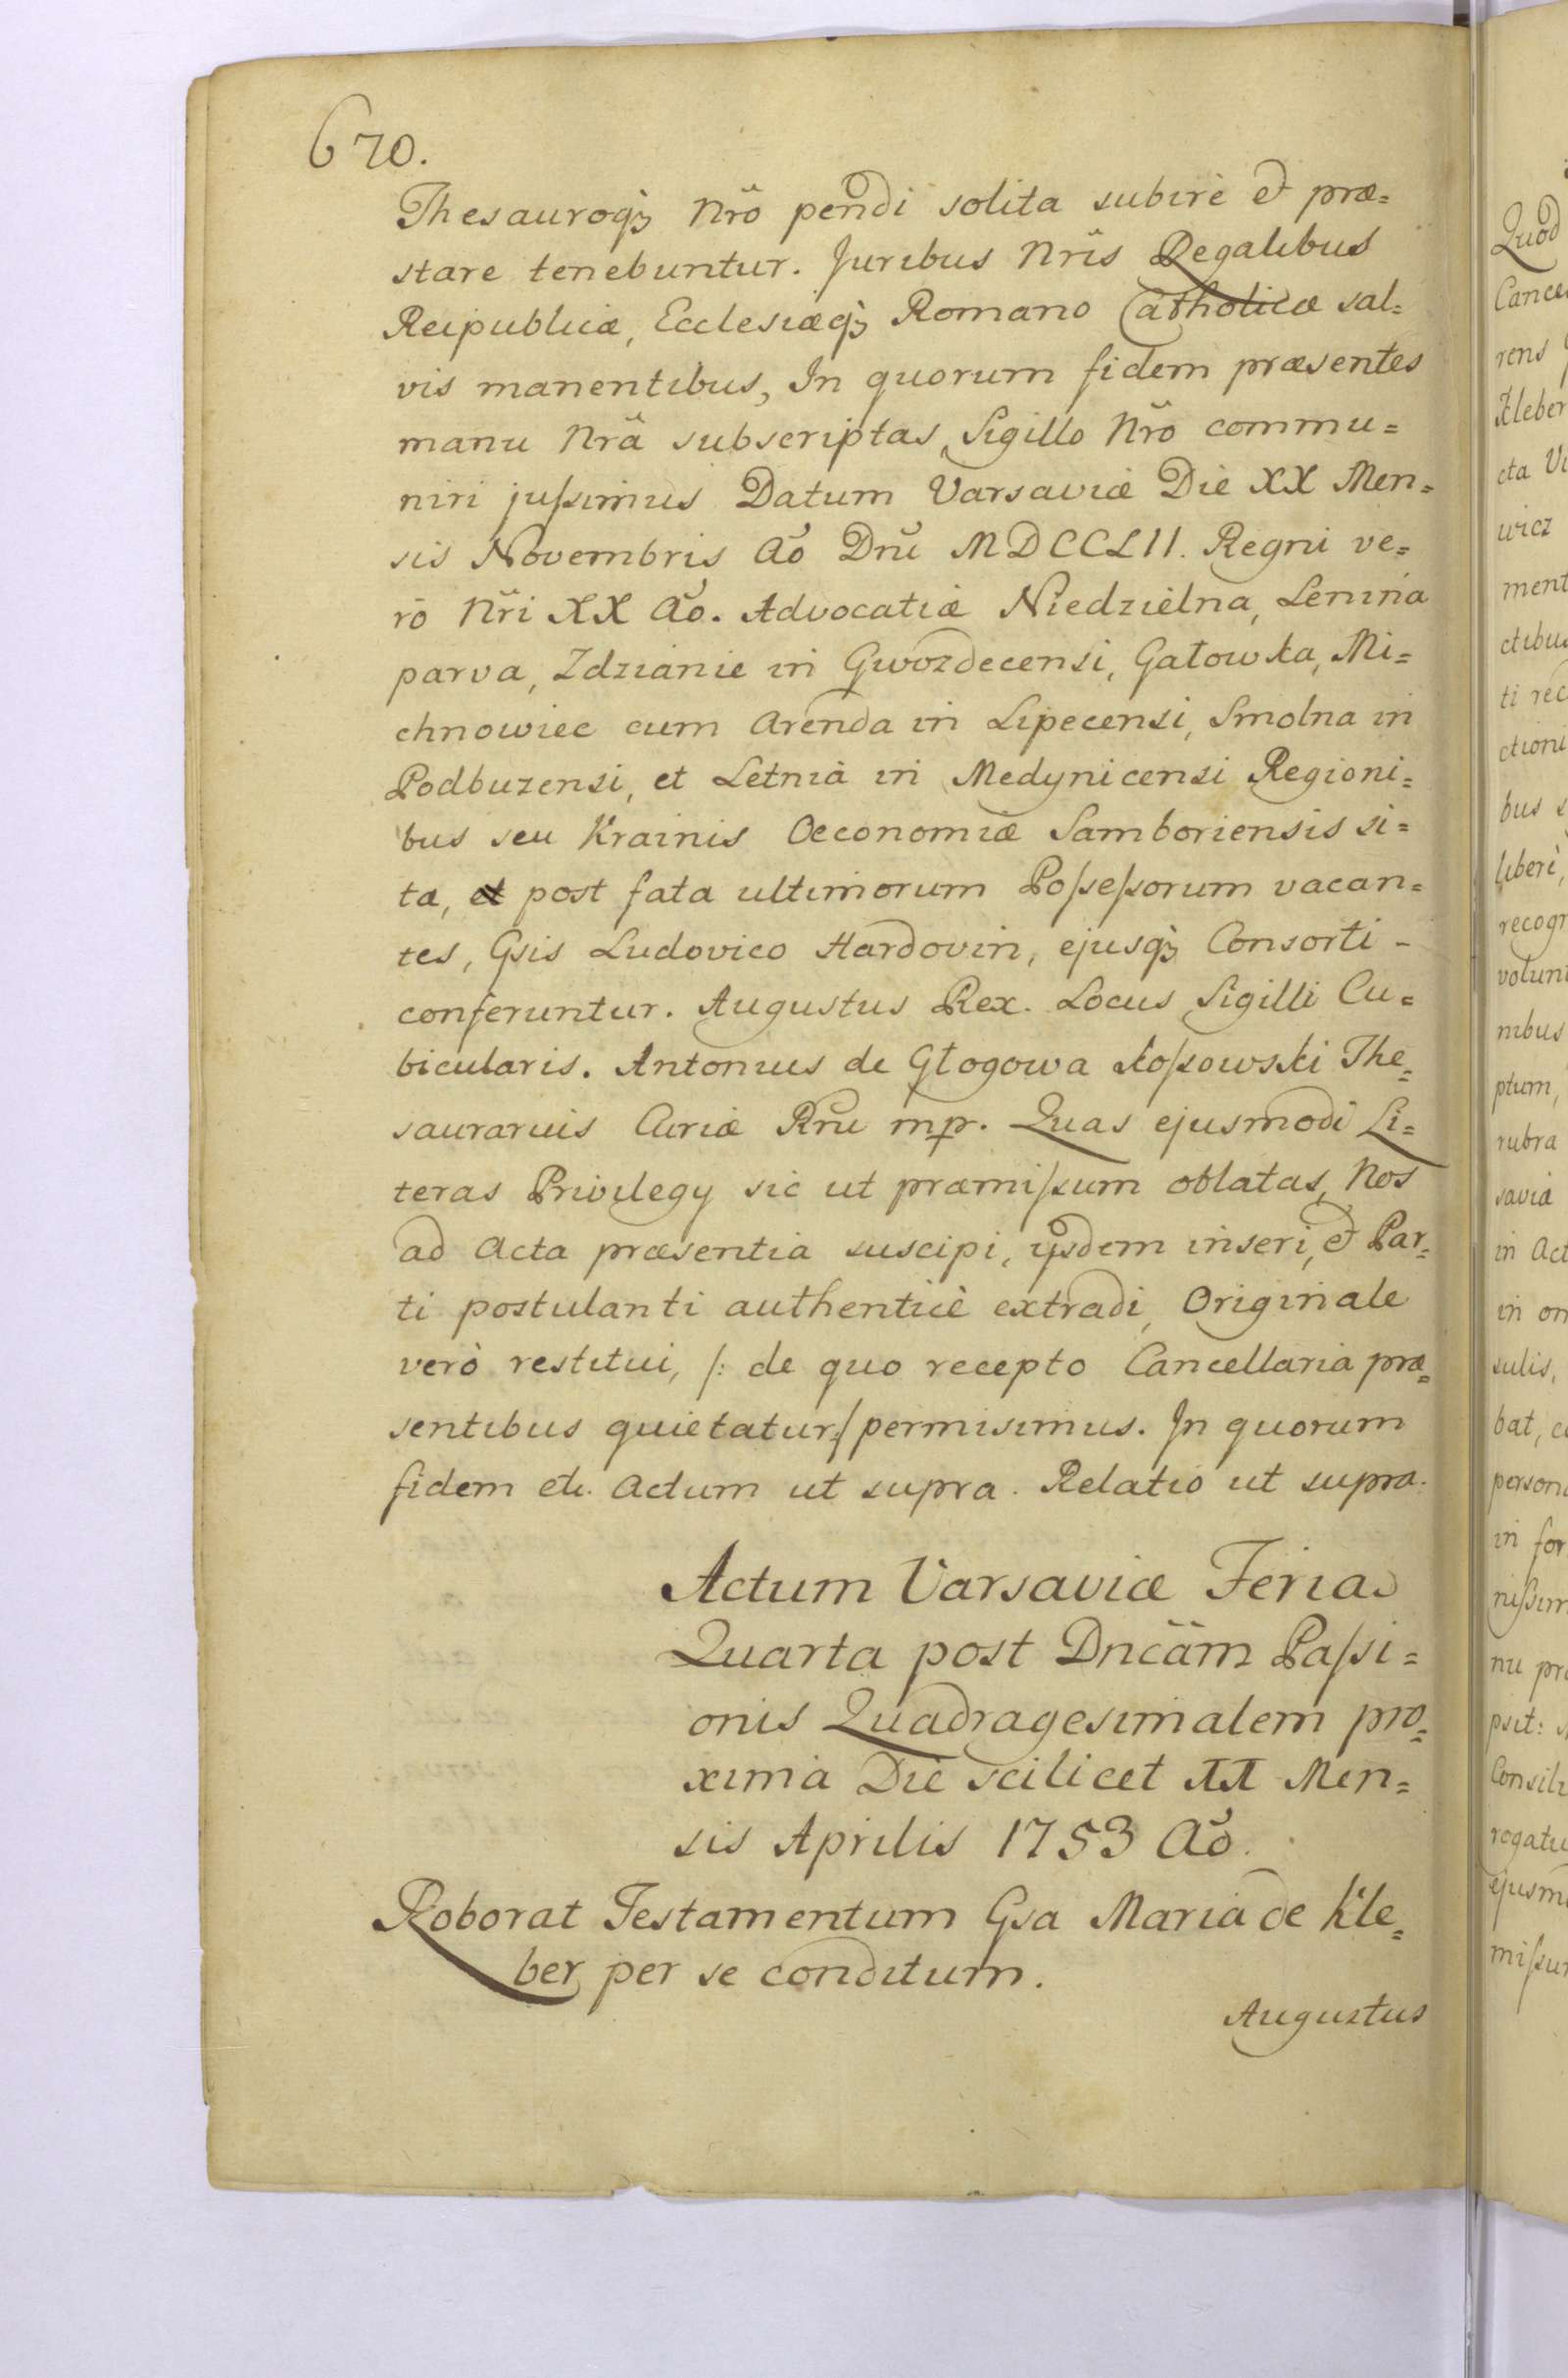 670.
Thesauroq₃ Nrõ pendi solita subire et præ=
stare tenebuntur. Juribus Nrĩs Regalibus
Reipublicæ, Ecclesiæq₃ Romano Catholicæ sal=
vis manentibus, In quorum fidem præsentes
manu Nrã subscriptas, Sigillo Nrõ commu=
niri jußimus Datum Varsaviæ Die XX Men=
sis Novembris Aõ Dnĩ MDCCLII. Regni ve=
rò Nr̃i XX Aõ. Advocatiæ Niedzielna, Lenina
parva, Zdzianie in Gwozdecensi, Gałowka, Mi=
chnowiec cum Arenda in Lipecensi, Smolna in
Podbuzensi, et Letnia in Medynicensi Regioni=
bus seu Krainis Oeconomiæ Samboriensis si=
ta, et post fata ultimorum Poßeßorum vacan=
tes, Gsis Ludovico Hardovin, ejusq₃ Consorti -
conferuntur. Augustus Rex. Locus Sigilli Cu=
bicularis. Antonius de Głogowa Koßowski The=
saurarius Curiæ Rñi mp. Quas ejusmodi Li=
teras Privilegy sic ut præmißum oblatas, Nos
ad Acta præsentia suscipi, ysdem inseri, et Par=
ti postulanti authenticè extradi, Originale
verò restitui, /: de quo recepto Cancellaria præ=
sentibus quietatur:/ permisimus. In quorum
fidem etc. Actum ut supra. Relatio ut supra.
Actum Varsaviæ Feria
Quarta post Dnicãm Paßi=
onis Quadragesimalem pro=
xima Die scilicet XI Men=
sis Aprilis 1753 Aõ.
Roborat Testamentum Gsa Maria de Kle=
ber per se conditum.
Augustus